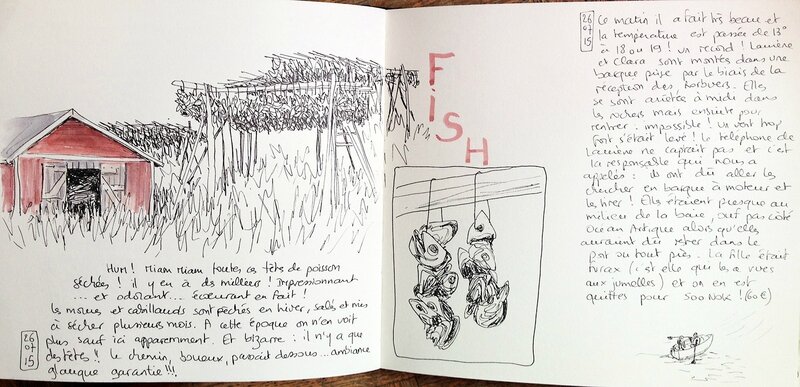 FiSH
HUM ! Miam Miam toutes ces têtes de poisson
séchées ! il y en a des milliers ! Impressionnant
... et odorant ... écœurant en fait !
Les morues et cabillauds sont pêchés en hiver, salés et mis
à sécher plusieurs mois. A cette époque on n'en voit
plus sauf ici apparemment. Et bizarre : il n'y a que
des têtes ! le chemin, boueux, passait dessous... ambiance
glauque garantie !!!
26
07
15
26
07
15
Ce matin il a fait très beau et
la température est passée de 13°
à 18 ou 19 ! un record ! Lumière
et Clara sont montées dans une
barque prise par le biais de la
réception des Rorbuers. Elles
se sont arrêtées à midi dans
les rochers mais ensuite pour
rentrer. impossible ! Un vent trop
fort s'était levé ! Le téléphone de
Lumière ne captait pas et c'est
la responsable qui nous a
appelés : ils ont dû aller les
chercher en barque à moteur et
les tirer ! Elles étaient presque au
milieu de la baie, côté
Océan Arctique alors qu'elles
auraient dû rester dans le
port ou tout près. La fille était
furax (c'est elle qui les a vues
aux jumelles) et on en est
quittes pour 500 NOK ! (60€)